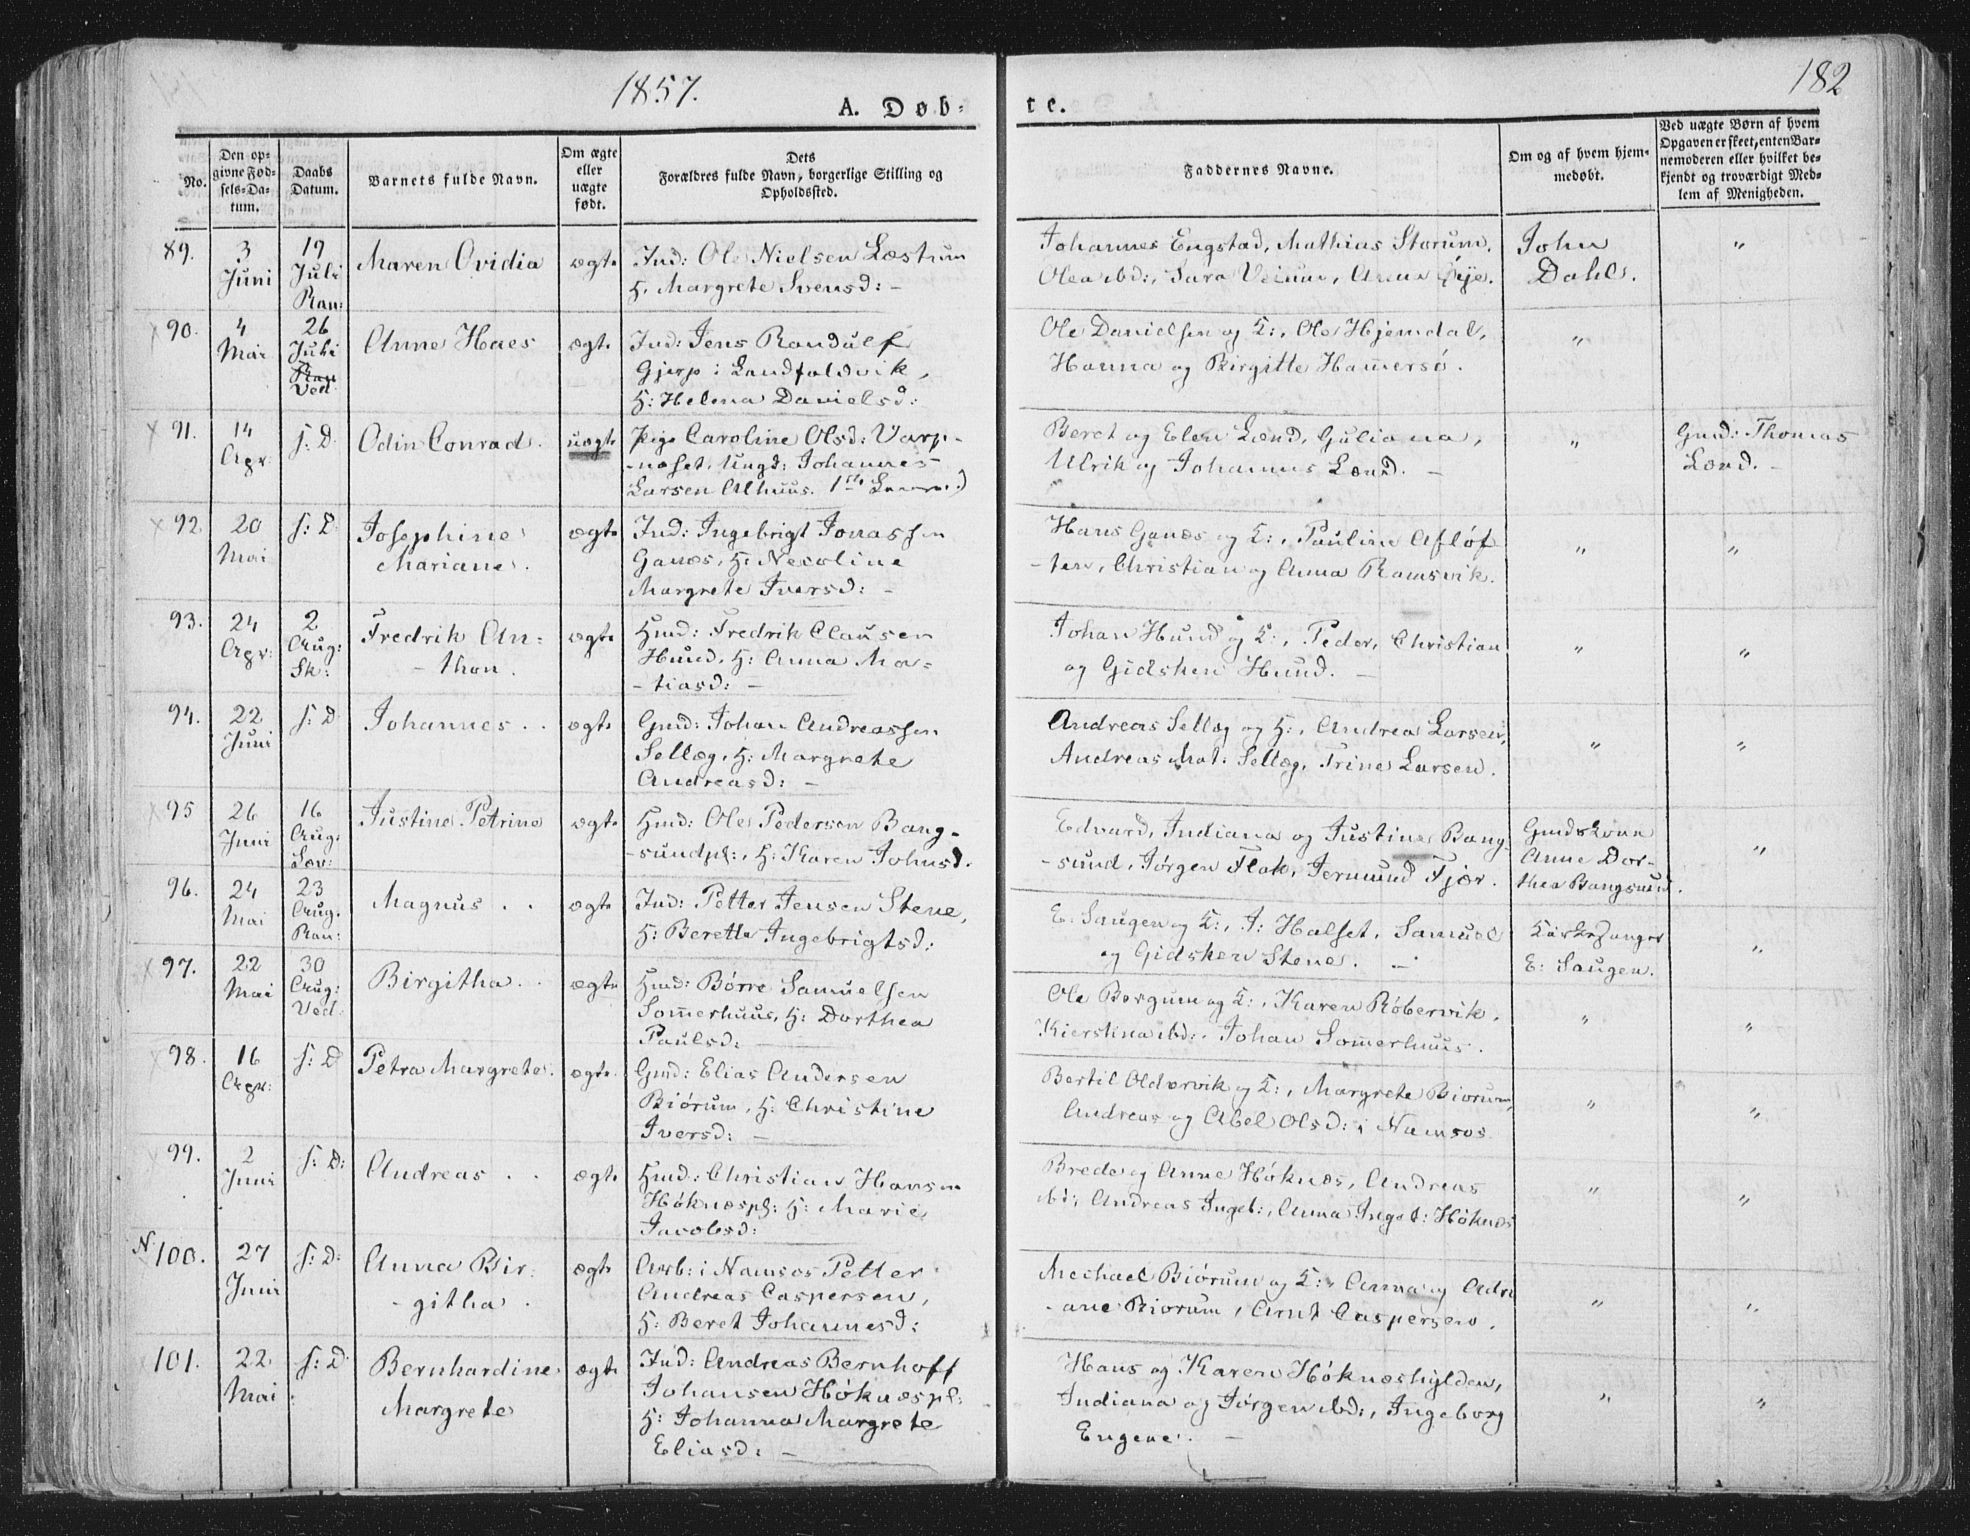 1857.
182
A. Døb-
te.
No.
Den op-
givne Fød-
sels-Da-
tum.
Daabs
Datum.
Barnets fulde Navn.
Om ægte
eller
uægte
født.
Dets
Forældres fulde Navn, borgerlige Stilling og
Opholdssted.
Faddernes Navne.
Om og af hvem hjem-
medøbt.
Ved uægte Børn af hvem
Opgaven er skeet, enten Bar-
nemoderen eller hvilket be-
kjendt og troværdigt Med-
lem af Menigheden.
89.
3
Juni
19
Juli
Ran:
Maren Ovidia
ægte
Ind: Ole Nielsen Læstrum
H. Margrete Svensd: -
Johannes Engstad, Mathias Storum,
Olea ibd:, Sara Veium, Anna Øije.
John
Dahl.
"
90.
4
Mai
26
Juli
Ran
Ved
Anne Haes
ægte
Ind: Jens Randulf
Gjerp i Landfaldvik,
H: Helena Danielsd:
Ole Danielsen og K:, Ole Hjemdal,
Hanna og Birgitte Ham̄ersø.
"
91.
14
Apr:
s: D.
Odin Conrad.
uægte
pige Caroline Olsd: Varp-
-neset. Ungd: Johannes
Larsen Alhuus. 1ste Leierm.)
Beret og Elen Lænd, Guliana,
Ulrik og Johannes Lænd. -
"
Gmd: Thomas
Lænd. -
92
20
Mai
s: D.
Josephine
Mariane.
ægte
Ind: Ingebrigt Jonassen
Ganæs, H: Nicoline
Margrete Iversd: -
Hans Ganæs og K:, Pauline Afløf
-ter, Christian og Anna Ramsvik.
"
"
93.
24
Apr:
2
Aug:
Sk:
Fredrik An-
-thon.
ægte
Hmd: Fredrik Clausen
Hund, H: Anna Ma-
-tiasd: -
Johan Hund og K:, Peder, Christian
og Gidsken Hund. -
"
"
94.
22
Juni
s: D.
Johannes. .
ægte
Gmd: Johan Andreassen
Sellæg, H: Margrete
Andreasd: -
Andreas Sellæg og H:, Andrea Larsen,
Andreas Mat: Sellæg, Trine Larsen.
"
"
95
26
Juni
16
Aug:
Løv:
Justine Petrine
ægte
Hmd: Ole Pedersen Bang-
-sundpl:, H: Karen Johnsd.
Edvard, Indiana og Justine Bang
-sund, Jørgen Flak, Jermund Fjær.
Gmdskone
Anne Dor-
thea Bangsund.
"
96.
24
Mai
23
Aug.
Ran:
Magnus . .
ægte
Ind: Petter Jensen Stene,
H: Berette Ingebrigtsd:
E: Saugen og K:, J: Halset, Samuel
og Gidsken Stene. -
Kirkesanger
E: Saugen.
"
97.
22
Mai
30
Aug:
Ved:
Birgitha. .
ægte
Hmd: Børre Samuelsen
Som̄erhuus, H: Dorthea
Paulsd:
Ole Bergum og K:, Karen Røbervik,
Kierstina ibd:, Johan Som̄erhuus.
"
"
98.
16
Apr:
s: D
Petra Margrete.
ægte
Gmd: Elias Andersen
Biørum, H: Christine
Iversd: -
Bertil Oldervik og K:, Margrete Biørum,
Andreas og Abel Olsd: i Namsos
"
"
99.
2
Juni
s: D:
Andreas . .
ægte
Hmd: Christian Hansen
Høknæspl: H: Marie
Jacobsd:
Brede og Anne Høknæs, Andreas
ibd:, Andreas Ingeb:, Anna Ingeb: Høknæs
"
"
N. 100.
27
Juni
s: D:
Anna Bir-
-githa.
ægte
Arb: i Namsos Petter
Andreas Caspersen,
H: Beret Johannesd:
Mechael Biørum og K:, Anna og Adri
-ane Biørum, Arnt Caspersen.
"
"
101.
22
Mai
s: D.
Bernhardine
Margrete
ægte
Ind: Andreas Bernhoff
Johansen Høknæspl:
H: Johanna Margrete
Eliasd: -
Hans og Karen Høknæshylden,
Indiana og Jørgen ibd:, Ingeborg
Engene. -
"
"